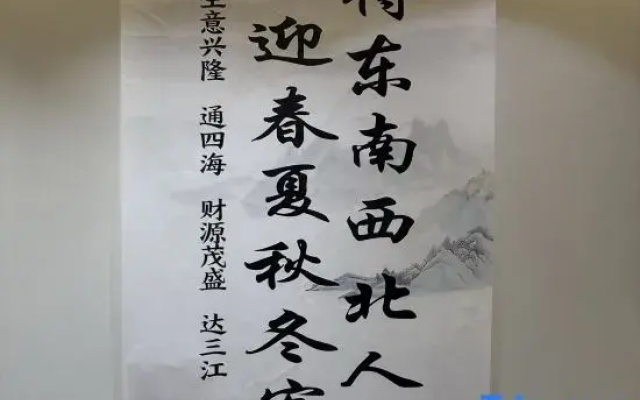 待东南西北人
迎春夏秋冬客
生意兴隆 通四海 财源茂盛 达三江